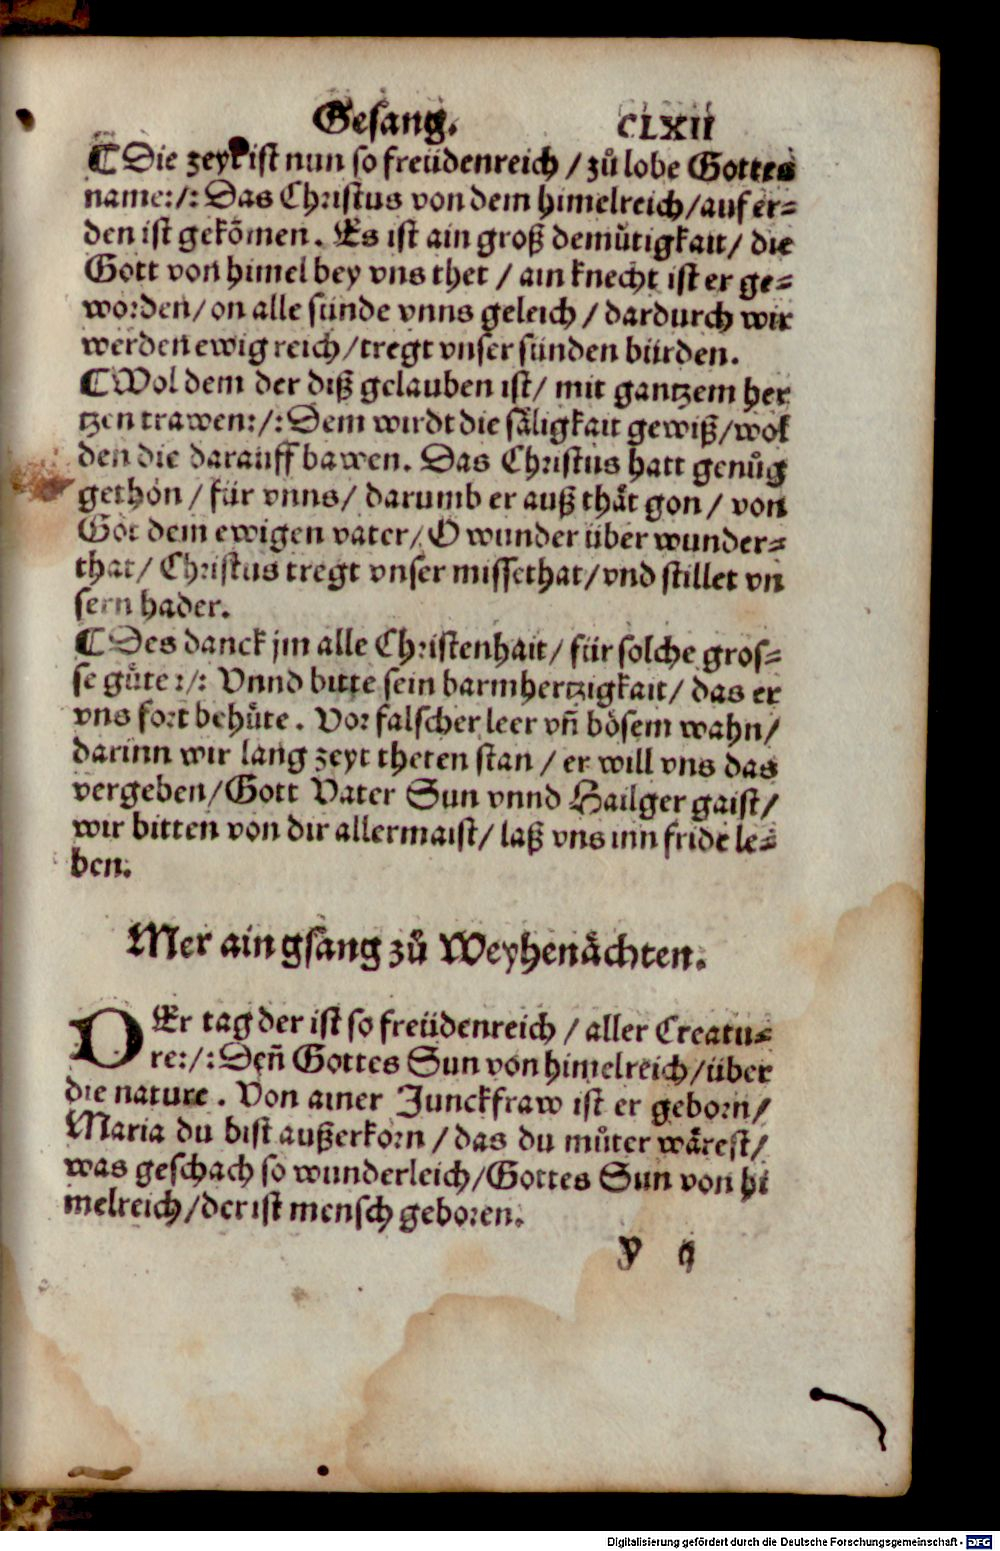 Gesang. CLXII
¶Die zeyt ist nun so freüdenreich / zů lobe Gottes
name:/: Das Christus von dem himelreich/auf er⸗
den ist gekömen. Es ist ain groß demůtigkait/ die
Gott von himel bey vns thet / ain knecht ist er ge⸗
worden/ on alle sünde vnns geleich / dardurch wir
werden ewig reich/tregt vnser sünden bürden.
¶Wol dem der diß gelauben ist/ mit gantzem her
tzen trawen:/: Dem wirdt die säligkait gewiß/wol
den die darauff bawen. Das Christus hatt genůg
gethon / für vnns/ darumb er auß thät gon / von
Got dem ewigen vater/ O wunder über wunder⸗
that/ Christus tregt vnser missethat/vnd stillet vn
sern hader.
¶Des danck jm alle Christenhait/ für solche gros⸗
se gůte:/: Vnnd bitte sein barmhertzigkait/ das er
vns fort behůte. Vor falscher leer vñ bösem wahn/
darinn wir lang zeyt theten stan / er will vns das
vergeben/Gott Vater Sun vnnd Hailger gaist/
wir bitten von dir allermaist/ laß vns inn fride le⸗
ben.
Mer ain gsang zů Weyhenächten.
DEr tag der ist so freüdenreich / aller Creatu⸗
re:/: Deñ Gottes Sun von himelreich/über
die nature. Von ainer Junckfraw ist er geborn/
Maria du bist außerkorn / das du můter wärest/
was geschach so wunderleich/Gottes Sun von hi
melreich/der ist mensch geboren.
y ij
Digitalisierung gefördert durch die Deutsche Forschungsgemeinschaft - DFG